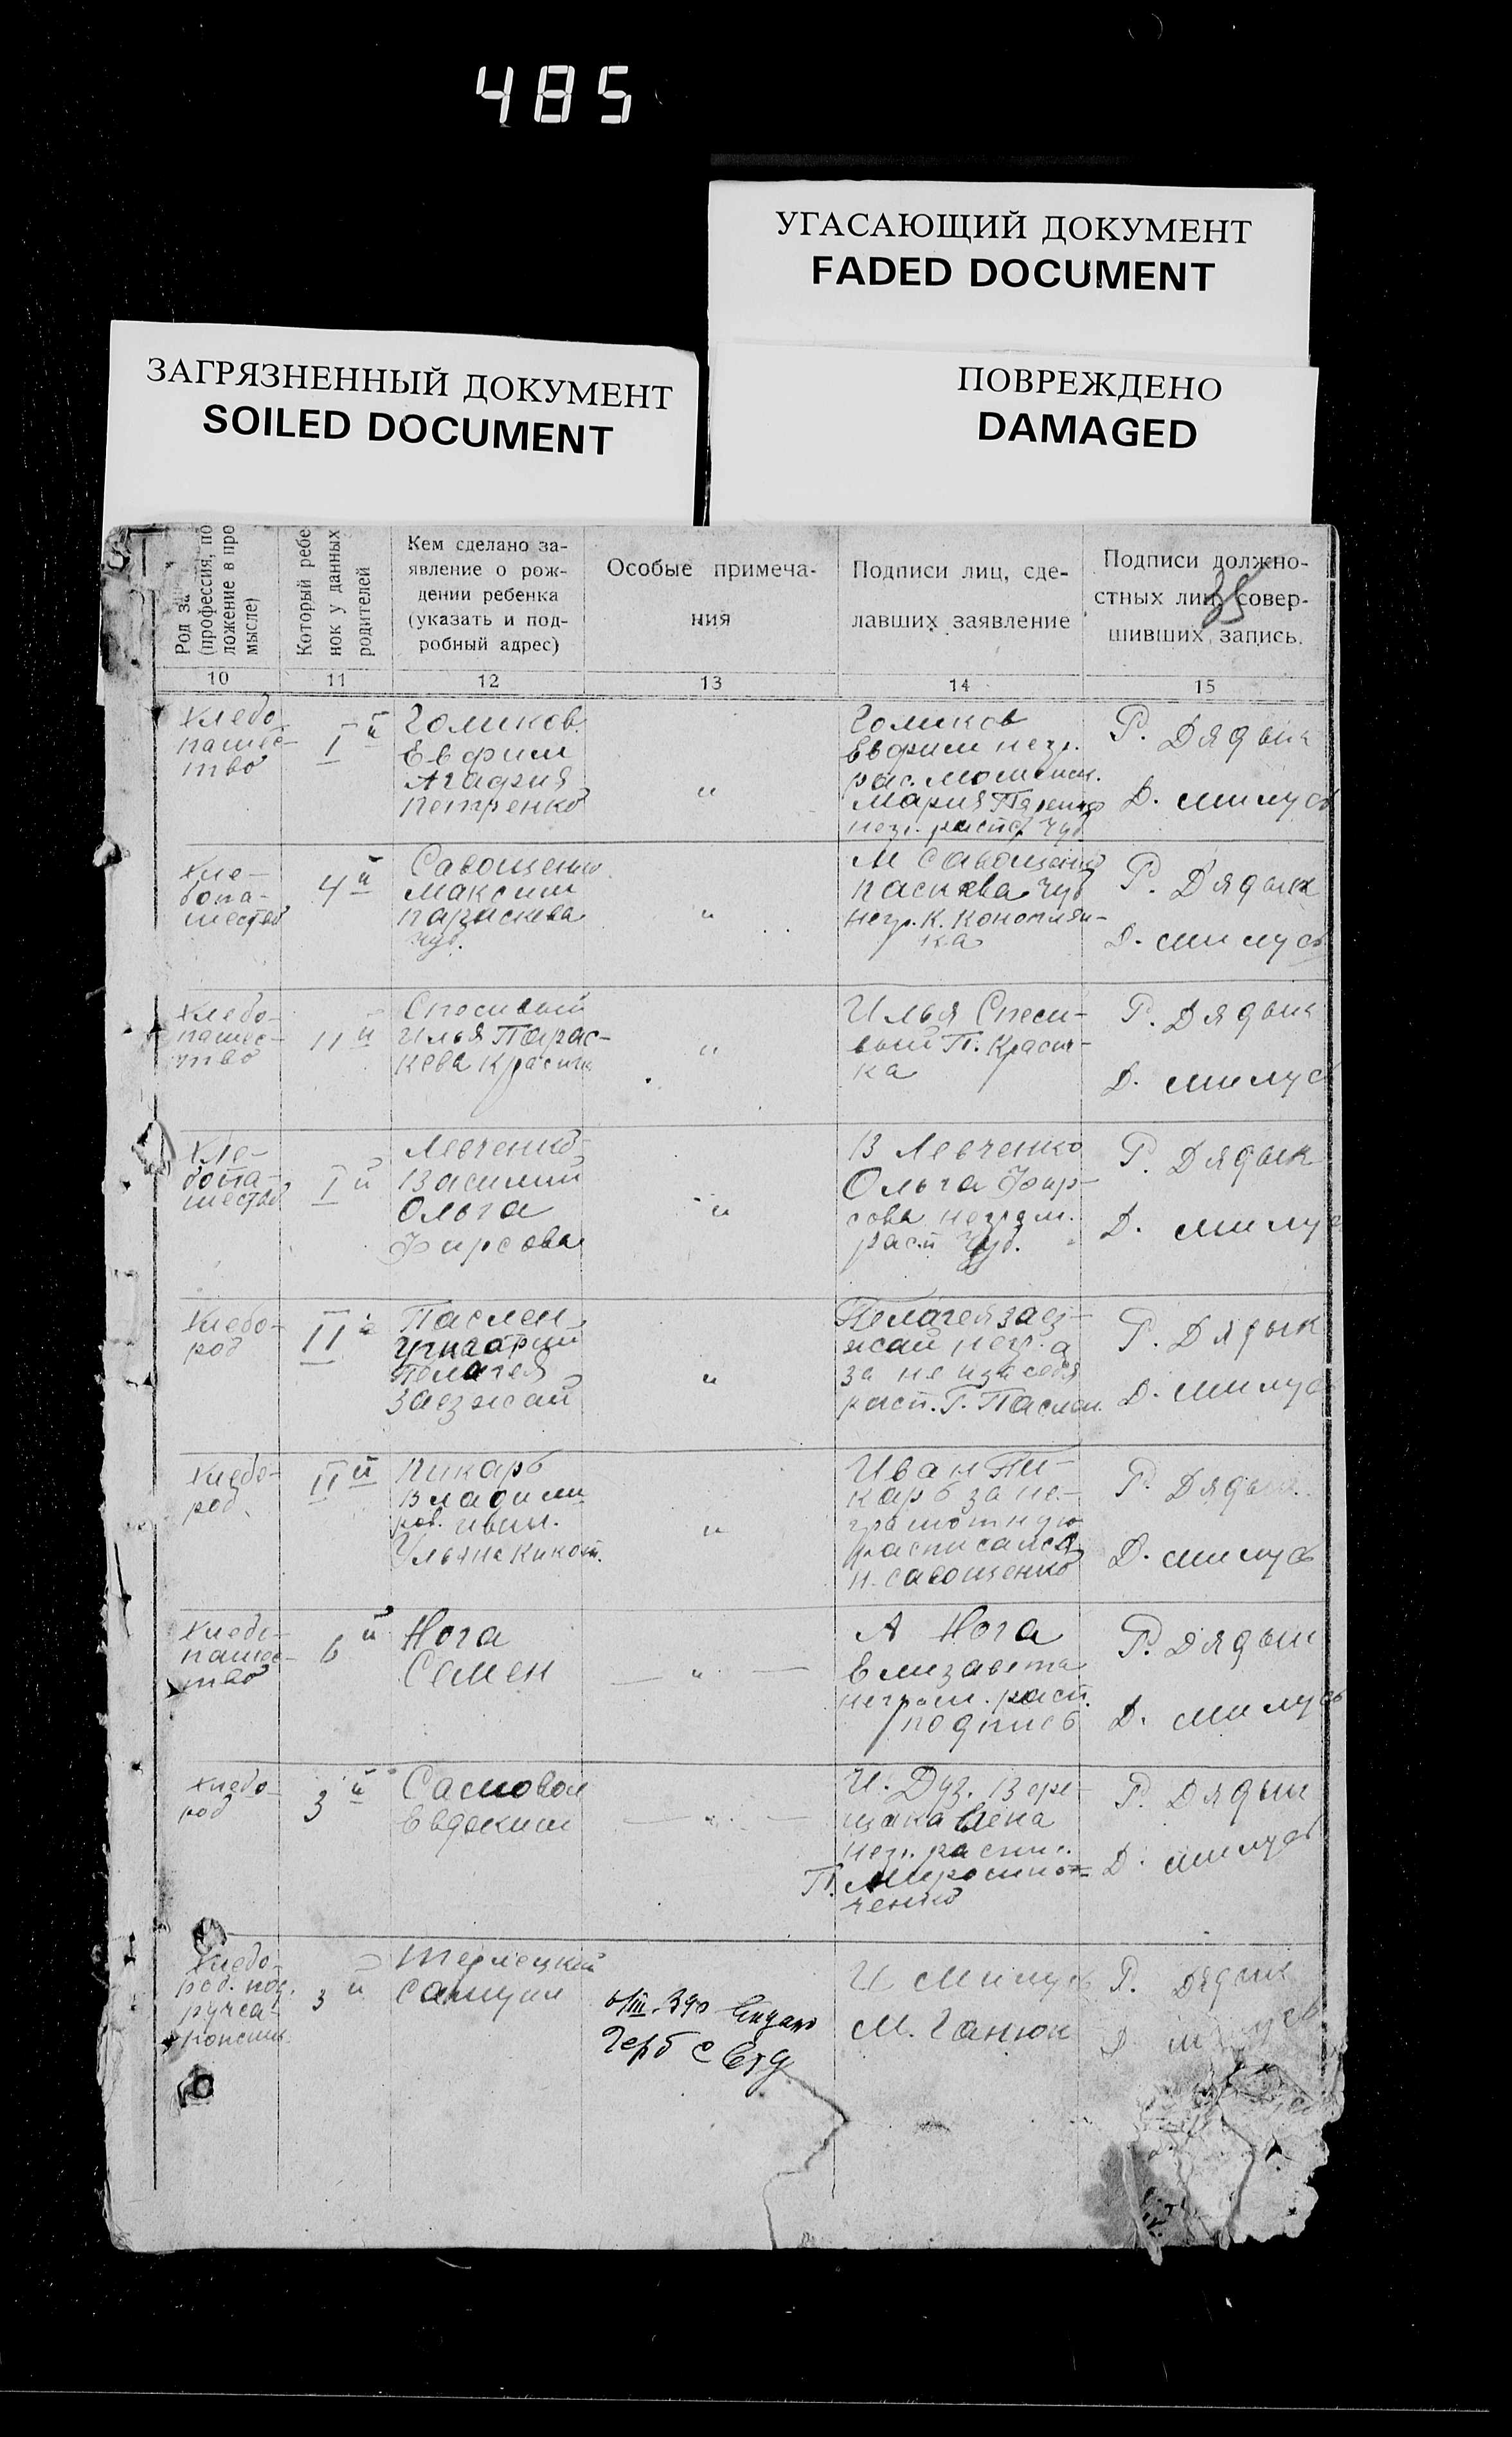 485
УГАСАЮЩИЙ ДОКУМЕНТ
FADED DOCUMENT
ЗАГРЯЗНЕННЫЙ ДОКУМЕНТ
SOILED DOCUMENT
ПОВРЕЖДЕНО
DAMAGED
35
Род за
(профессия, по
ложение в про
мысле)
Который ребе
нок у данных
родителей
Кем сделано за-
явление о рож-
дении ребенка
(указать и под-
робный адрес)
Особые примеча-
ния
Подписи лиц, сде-
лавших заявление
Подписи должно-
стных лиц, совер-
шивших запись.
10 11 12 13 14 15
Хлебо
пашес-
тво
I й
Голиков
Евфим
Агафия
Петренко
"
Голиков
Евфим негр.
Мария
негр. Чуб
Р. Дядык
Д. Милусь
Хле-
бопа-
шество
4 й
Савощенко
Максим
Параскева
Чуб.
"
М Савощенко
Чуб
негр. К. Коноплян-
ка
Р. Дядык
Д. Милусь
Хлебо-
пашес-
тво
11 й
Спесивый
Илья Парас-
кева
"
Илья Спеси-
вый П. Красн-
ка
Р. Дядык
Д. Милусь
Хле-
бопа-
шество
I й
Левченко
Василий
Ольга
Фирсова
"
В Левченко
Ольга Фир-
сова неграм.
расп Чуб.
Р. Дядык
Д. Милусь
Хлебо-
род
II й
Паслен
Григорий
Пелагея
Заезжай
"
Пелагея Заез-
жай негр. а
за не и за себя
расп. Г. Паслен
Р. Дядык
Д. Милусь
Хлебо-
род
II й
Пикарь
Владими
ров. Иван.
Ульяна
"
Иван Пи-
карь за не-
грамотную
расписался
Н. Савощенко
Р. Дядык
Д. Милусь
Хлебо-
пашес-
тво
6 й
Нога
Семен
— " —
А Нога
Елизавета
неграм. расп.
подпись
Р. Дядык
Д. Милусь
Хлебо-
род
3 й
Самовол
Евдоким
— " —
И. Дуз.
негр.
П. Мирошни-
ченко
Р. Дядык
Д. Милусь
Хлебо-
род.
3 й
Терлецкий
Самуил
выдано
Герб
И Милусь
М. Ганюк
Р. Дядык
Д